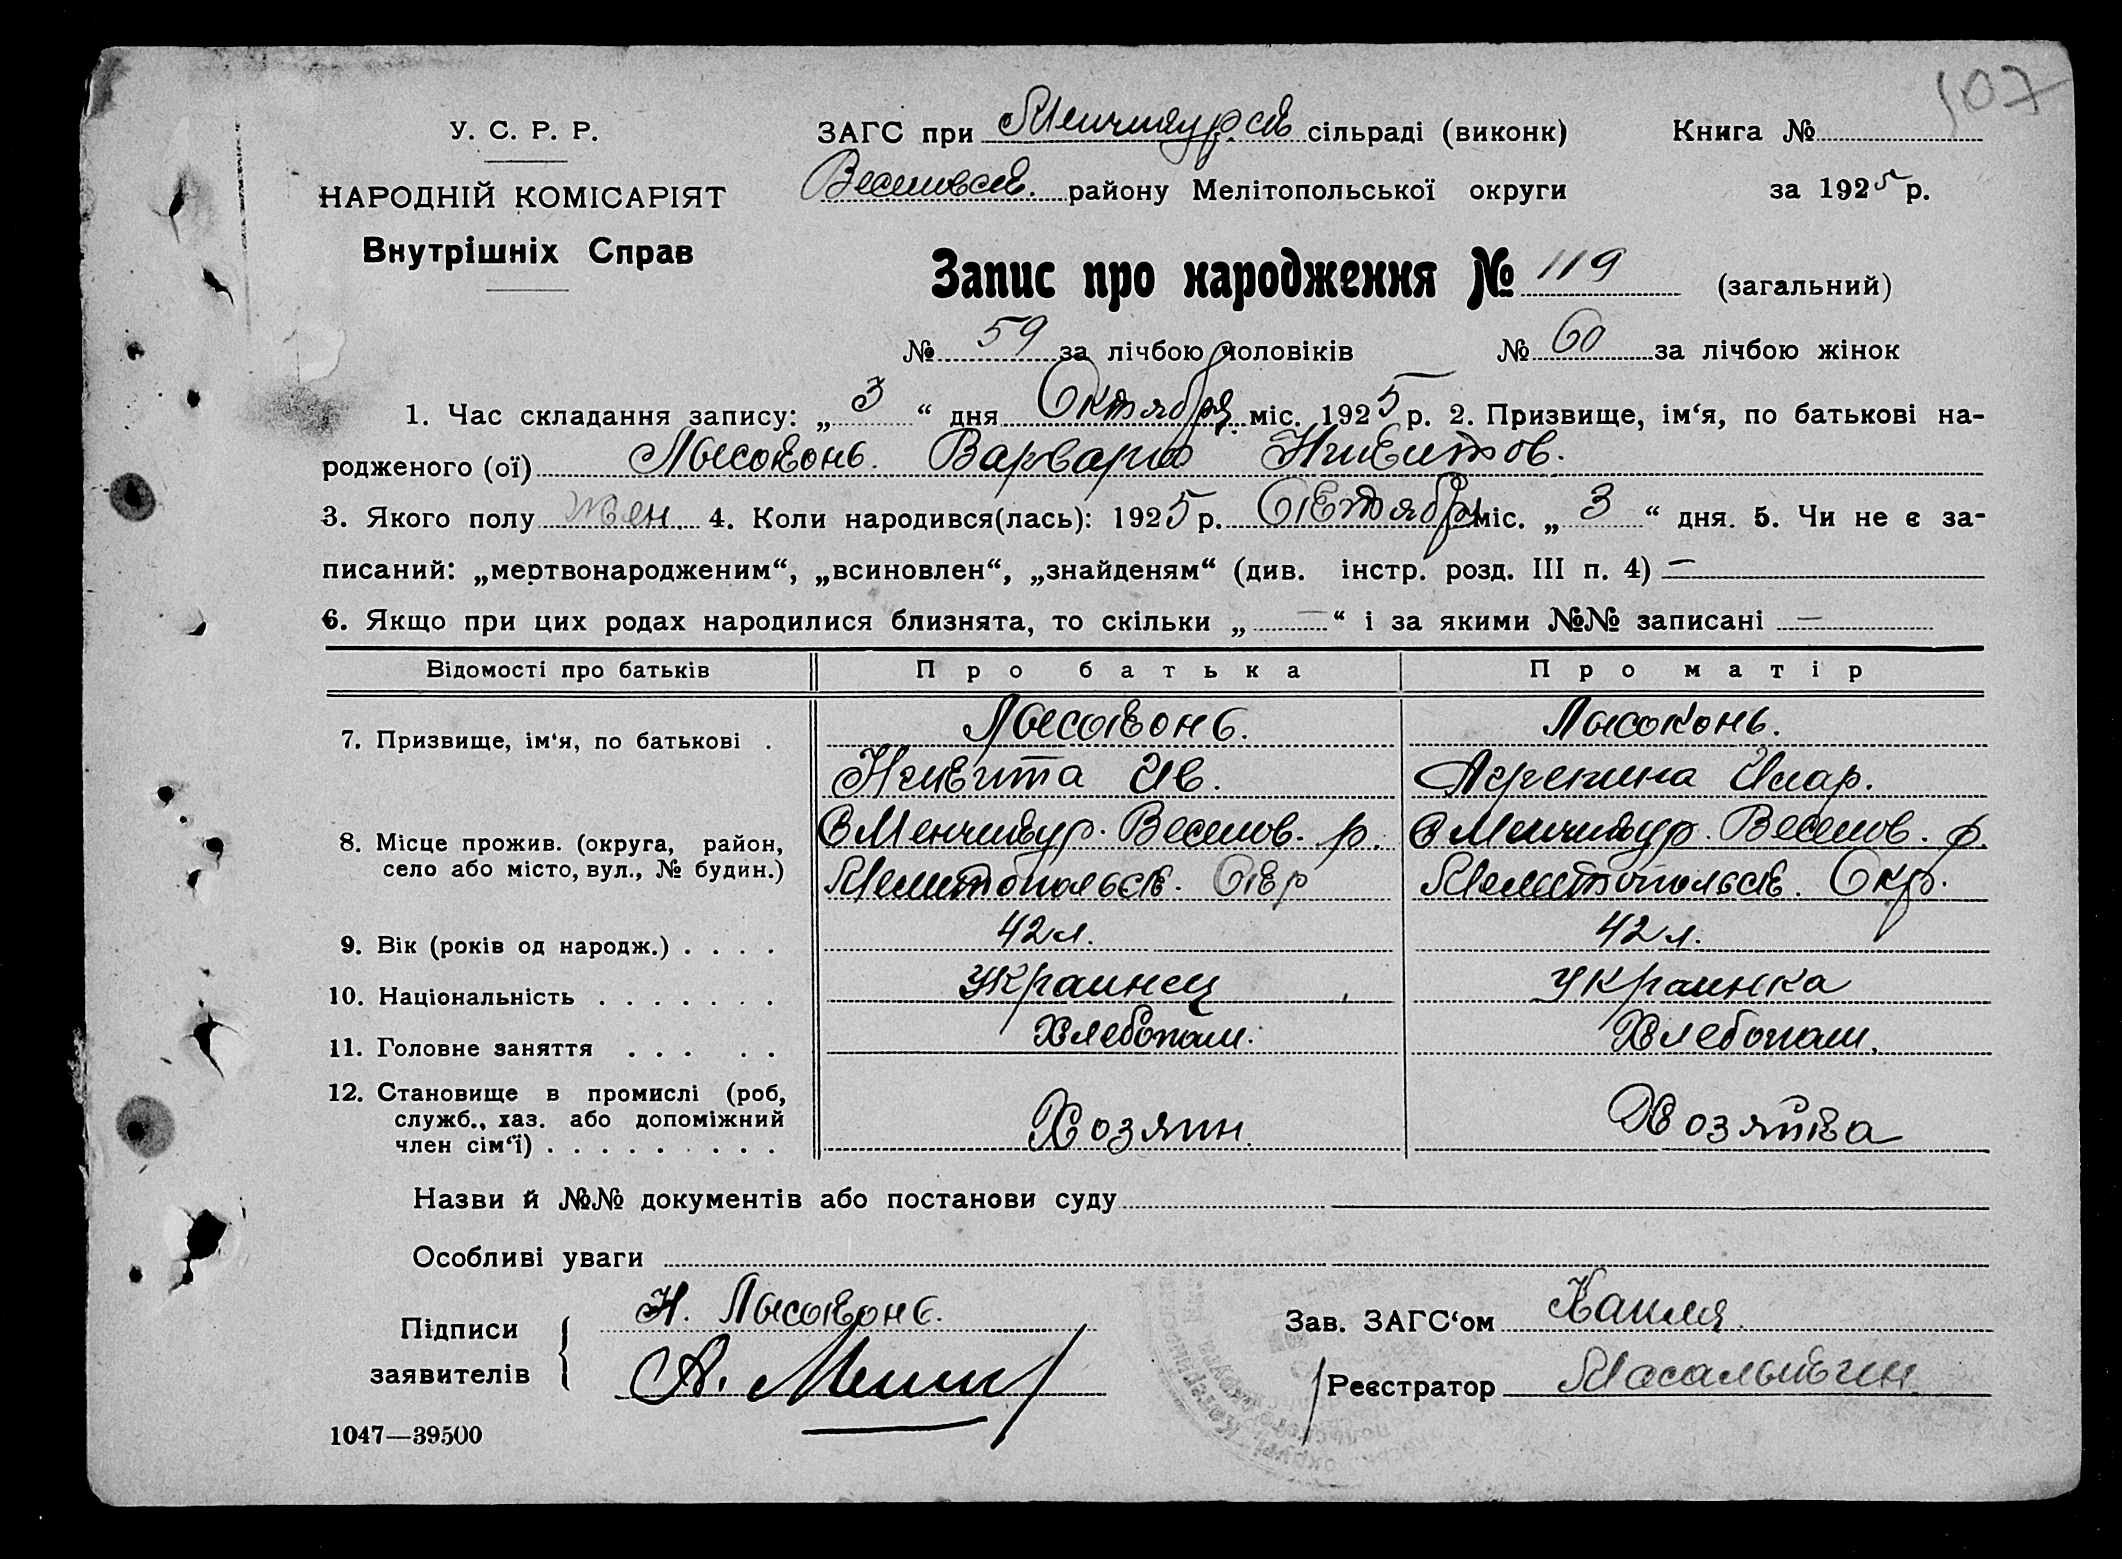 107
У. С. Р. Р.
НАРОДНІЙ КОМІСАРІЯТ
Внутрішніх Справ
ЗАГС при Менчикурск сільраді (виконк) Книга №
Веселовск. району Мелітопольської округи за 1925 р.
Запис про народження № 119 (загальний)
№ 59 за лічбою чоловіків № 60 за лічбою жінок
1. Час складання запису: „ 3 “ дня Октября міс. 1925 р. 2. Призвище, ім‘я, по батькові на-
родженого (ої) Лысоконь. Варвара Никитов.
3. Якого полу жен. 4. Коли народився(лась): 1925 р. Октября міс. „ 3 “ дня. 5. Чи не є за-
писаний: „мертвонародженим“, „всиновлен“, „знайденям“ (див. інстр. розд. III п. 4) —
6. Якщо при цих родах народилися близнята, то скільки „ — “ і за якими №№ записані —
Відомості про батьків Про батька Про матір
7. Призвище, ім‘я, по батькові . Лысоконь. Лысоконь.
Никита Ив.
8. Місце прожив. (округа, район, село або місто, вул., № будин.) С Менчикур. Веселов. р. С Менчикур. Веселов. р.
Мелитопольск. Окр Мелитопольск. Окр.
9. Вік (років од народж.) . . . . 42 л. 42 л.
10. Національність . . . . . . . Украинец Украинка
11. Головне заняття . . . . . Хлебопаш. Хлебопаш.
12. Становище в промислі (роб, служб., хаз. або допоміжний член сім‘ї) . . . . . . . . . Хозяин. Хозяйка
Назви й №№ документів або постанови суду
Особливі уваги
Підписи заявителів Н. Лысоконь.
А.
Зав. ЗАГС‘ом
Реєстратор
1047—39500